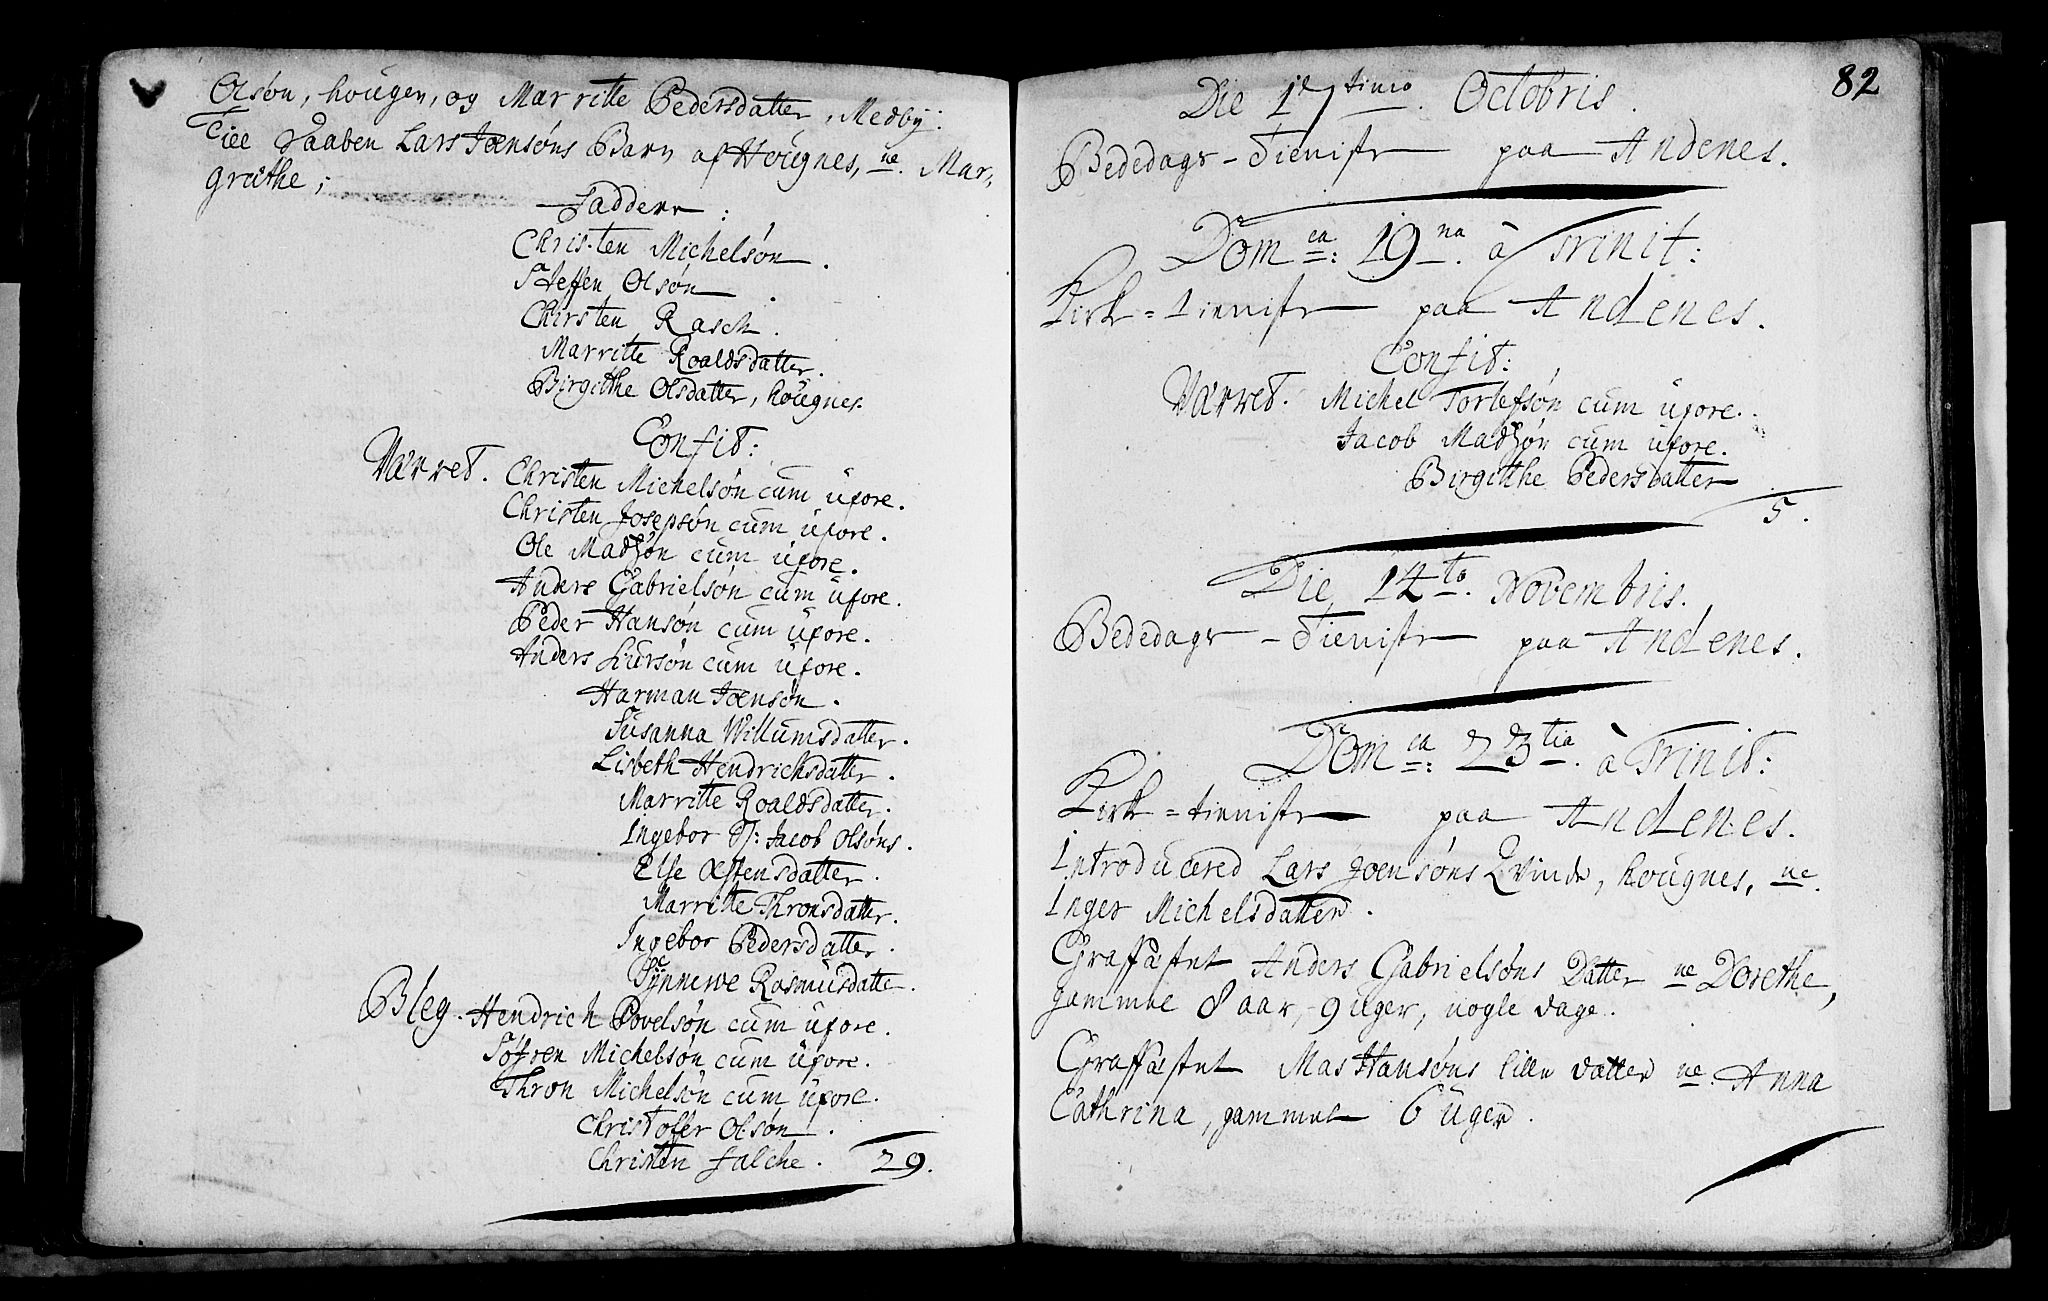 Olsøn, hougen, og Marritte Pedersdatter, Medby:
Till Daaben Lars Joensøns Barn af Hougnes, ne. Mar„
grethe;
Faddere:
Christen Michelsøn.
Steffen Olsøn.
Chirsten Rasch.
Marritte Roaldsdatter.
Birgithe Olsdatter, hougnes.
Confit:
Værret. Christen Michelsøn cum uxore.
Christen Josepsøn cum uxore.
Ole Madsøn cum uxore.
Anders Gabrielsøn cum uxore.
Peder Hansøn cum uxore.
Anders Lursøn cum uxore.
Harman Joensøn.
Susanna Willumsdatter.
Lisbeth Hendrichsdatter.
Marritte Roaldsdatter.
Ingebor S: Jacob Olsøns.
Else Østensdatter.
Marritte Thronsdatter.
Ingebor Pedersdatter.
Synnewe Rasmusdatter.
Bleg. Hendrich Povelsøn cum uxore.
Søfren Michelsøn cum uxore.
Thron Michelsøn cum uxore.
Christofer Olsøn.
Christen Falche. 29.
82
Die 17 timo. Octobris.
Bededags-Tieniste paa Andenes.
Dom ca: 19 na. à Trinit:
Kirke=Tieniste paa Andenes.
Confit:
Værret. Michel Torlefsøn cum uxore.
Jacob Madsøn cum uxore.
Birgithe Pedersdatter
5.
Die 14 to. Novembris.
Bededags-Tieniste paa Andenes.
Dom ca: 23 tia. à Trinit:
Kirke=tieniste paa Andenes.
Introducered Lars Joensøns Qvinde, hougnes, ne.
Inger Michelsdatter.
Graffæstet Anders Gabrielsøns Datter ne Dorethe,
gammel 8 aar, 9 uger, nogle dage.
Graffæstet Mas Hansøns lille datter ne. Anna
Cathrina, gammel 6 uger.